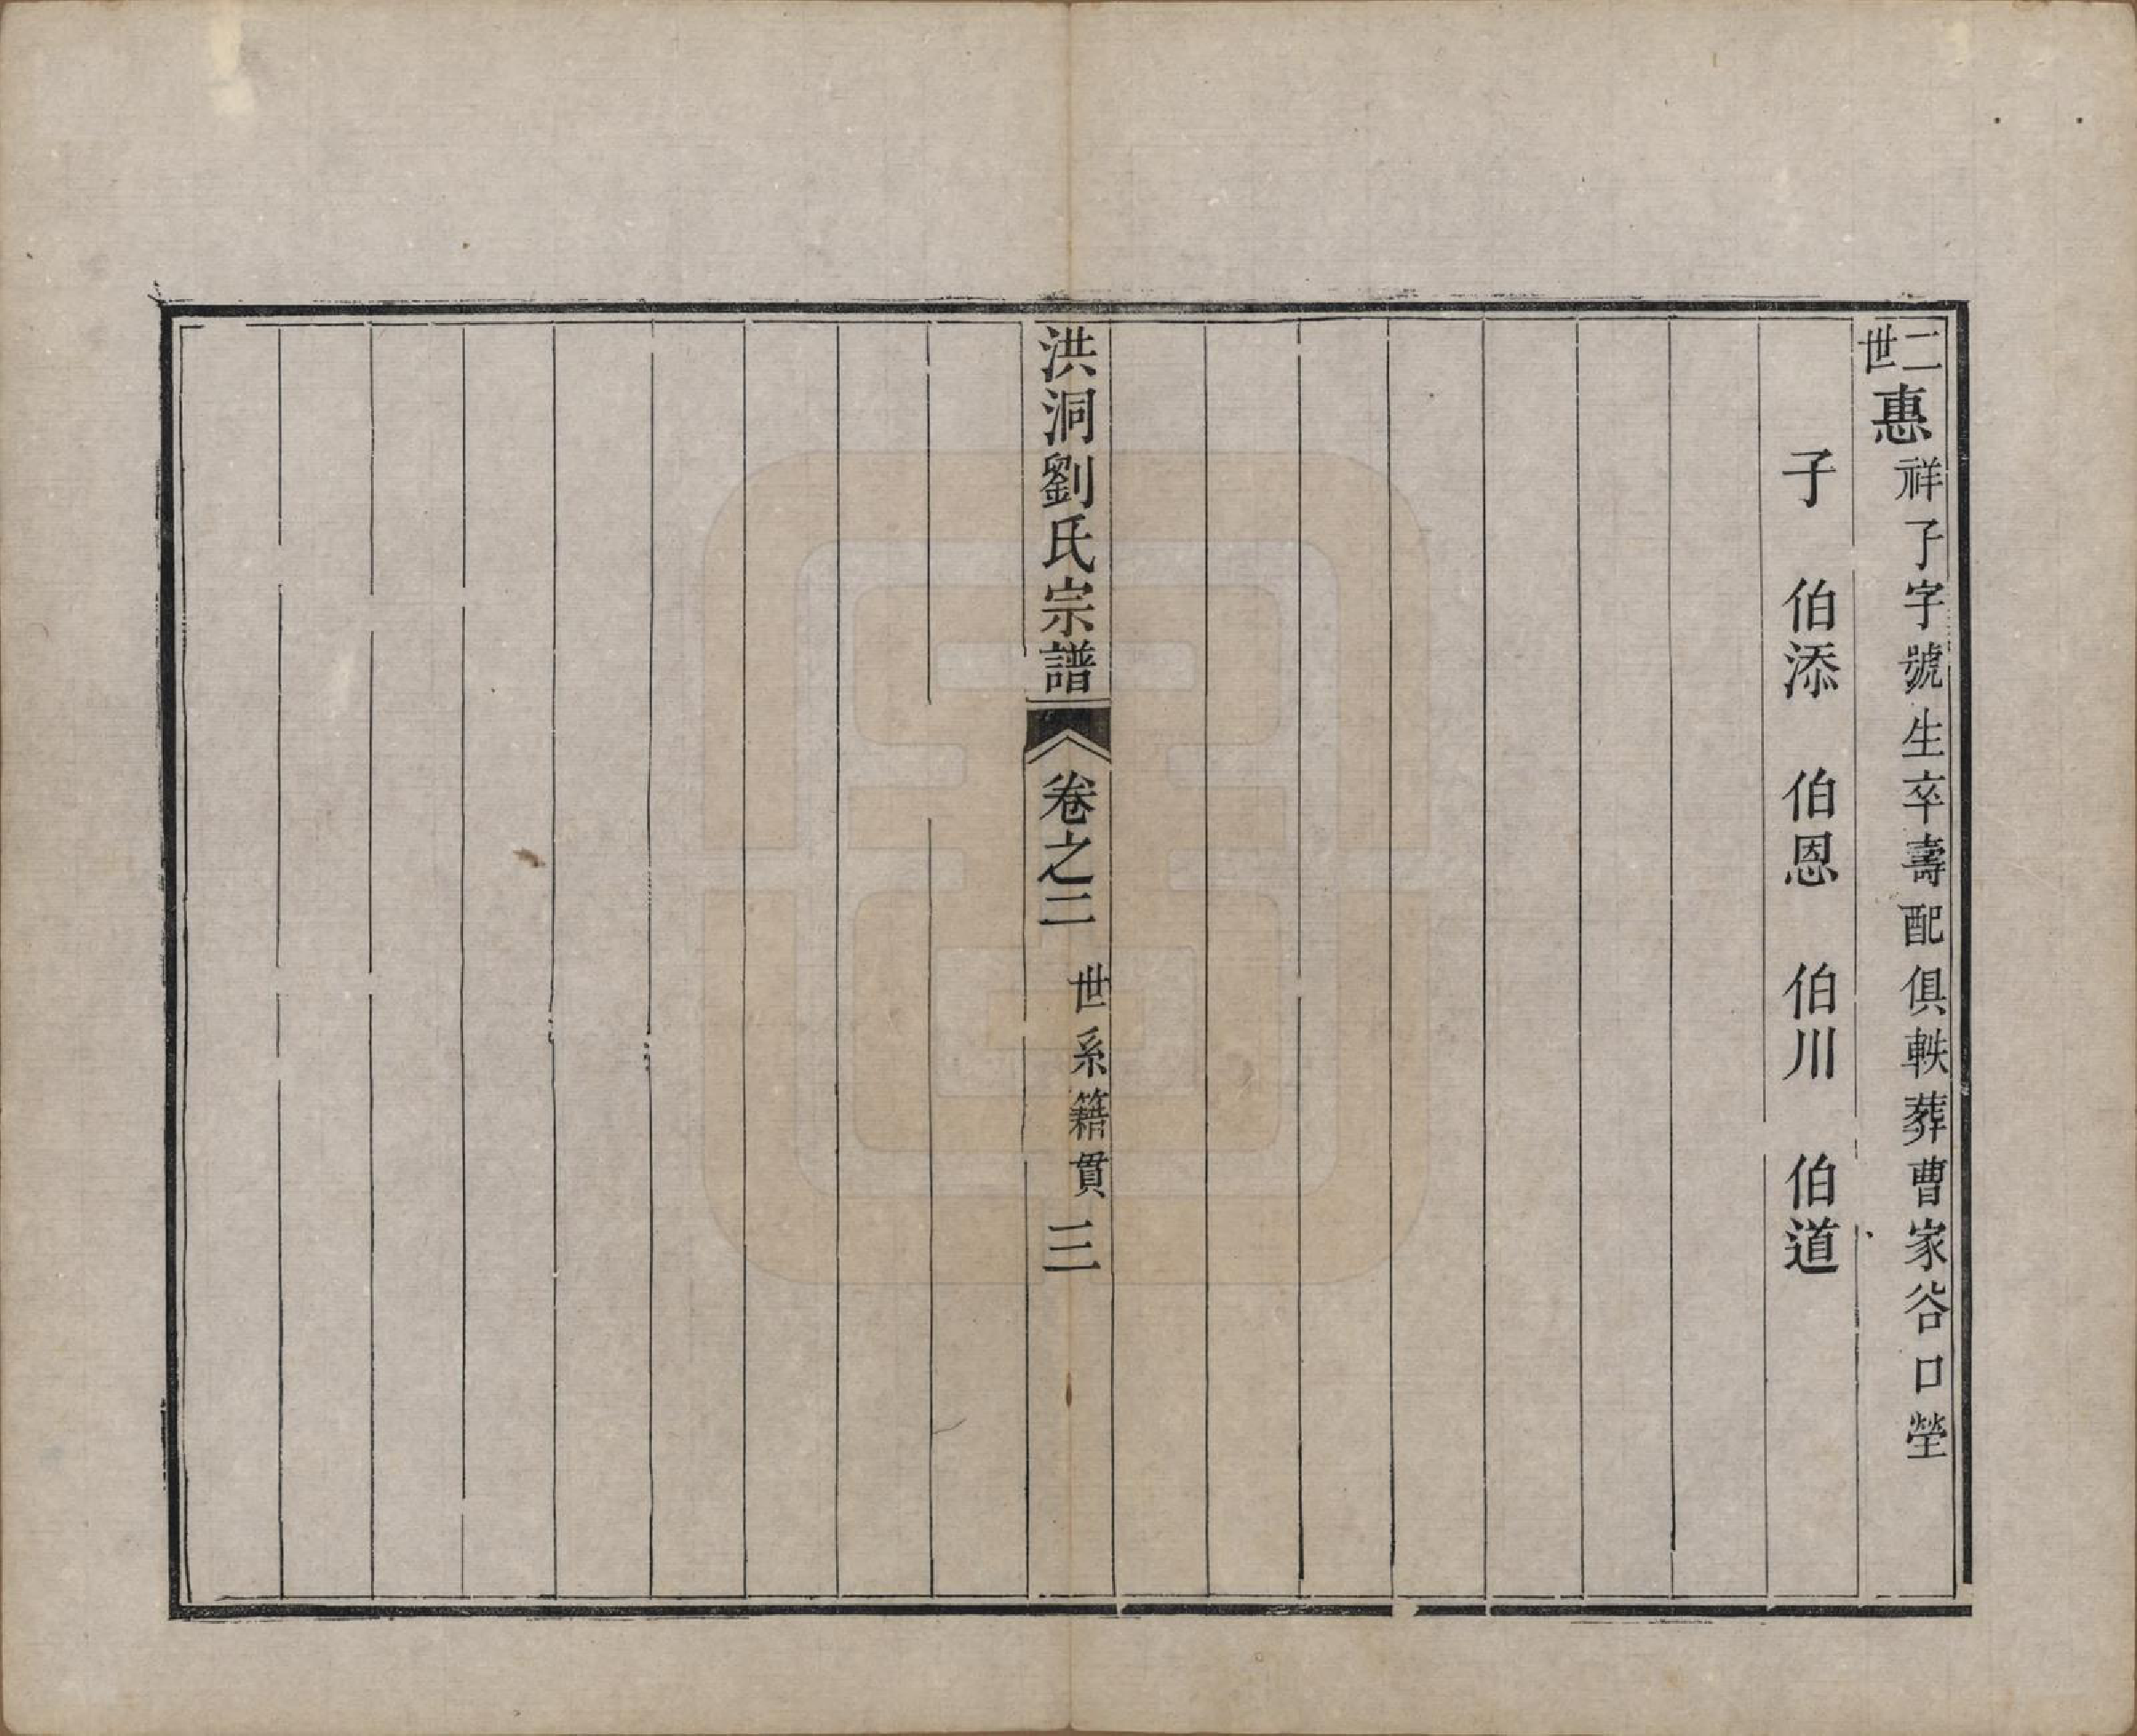 二世惠祥子字號生卒壽配俱軼葬曹家谷口塋
子 伯添 伯恩 伯川 伯道
洪洞劉氏宗譜 卷之二 世系籍貫 三